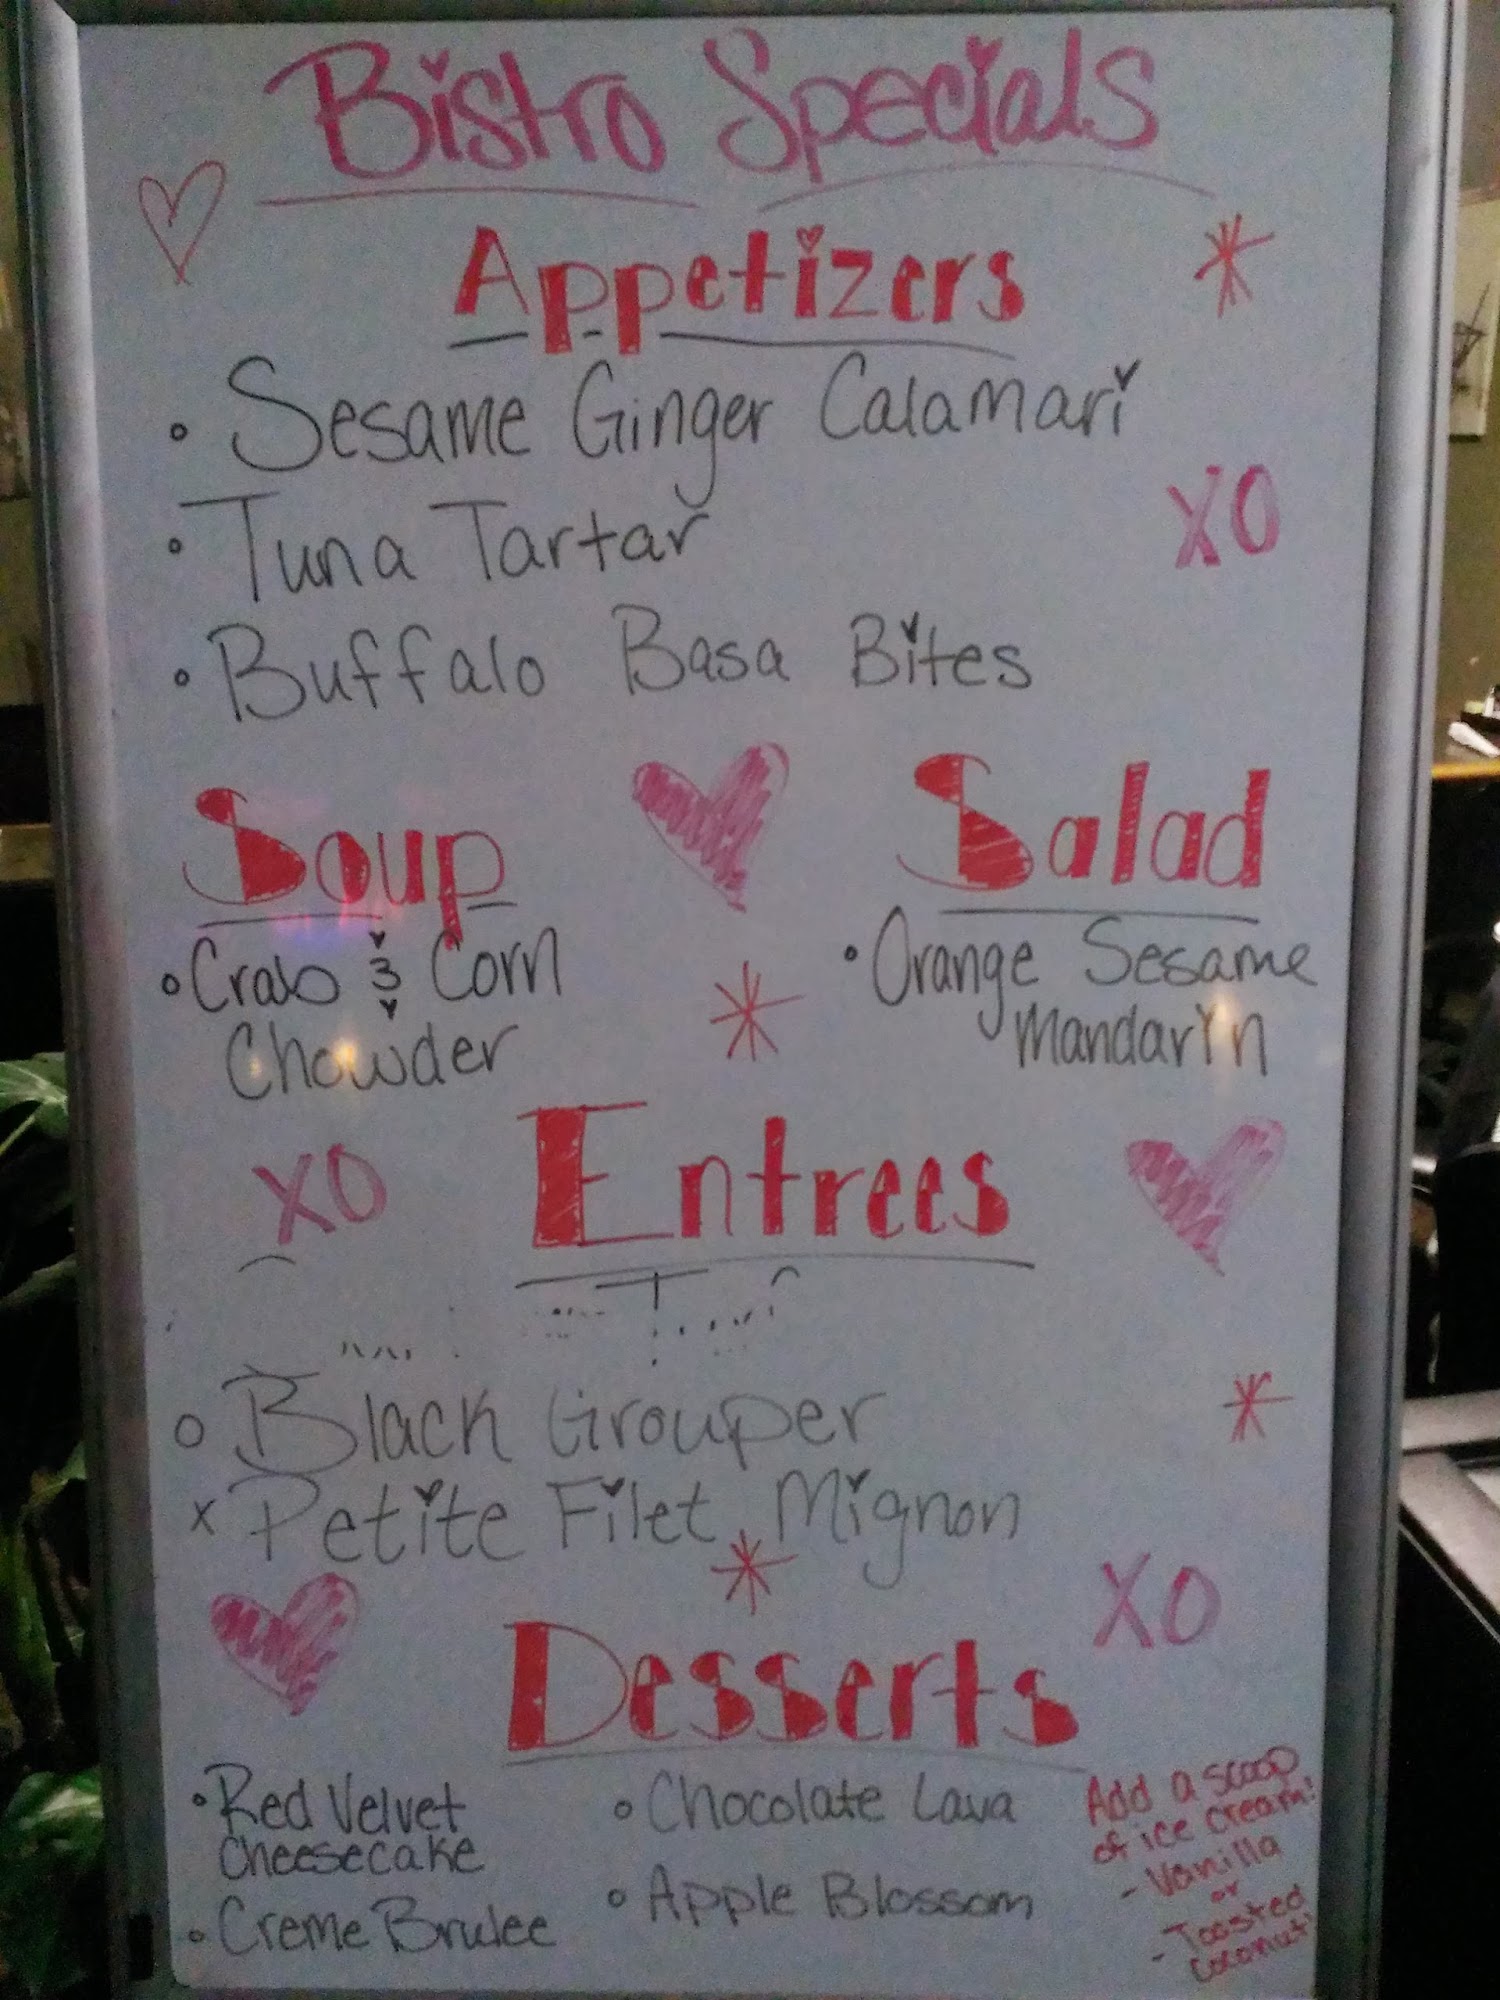 Bistro Specials
Appetizers
• Sesame Ginger Calamari
• Tuna Tartar
XO
• Buffalo Basa Bites
Soup
• Crab & Corn
Chowder
Salad
• Orange Sesame
Mandarin
XO
Entrees
o Black Grouper
x Petite Filet Mignon
XO
Desserts
• Red Velvet
Cheesecake
• Creme Brulee
• Chocolate Lava
• Apple Blossom
Add a scoop
of ice cream!
- Vanilla
or
- Toasted
Coconut!